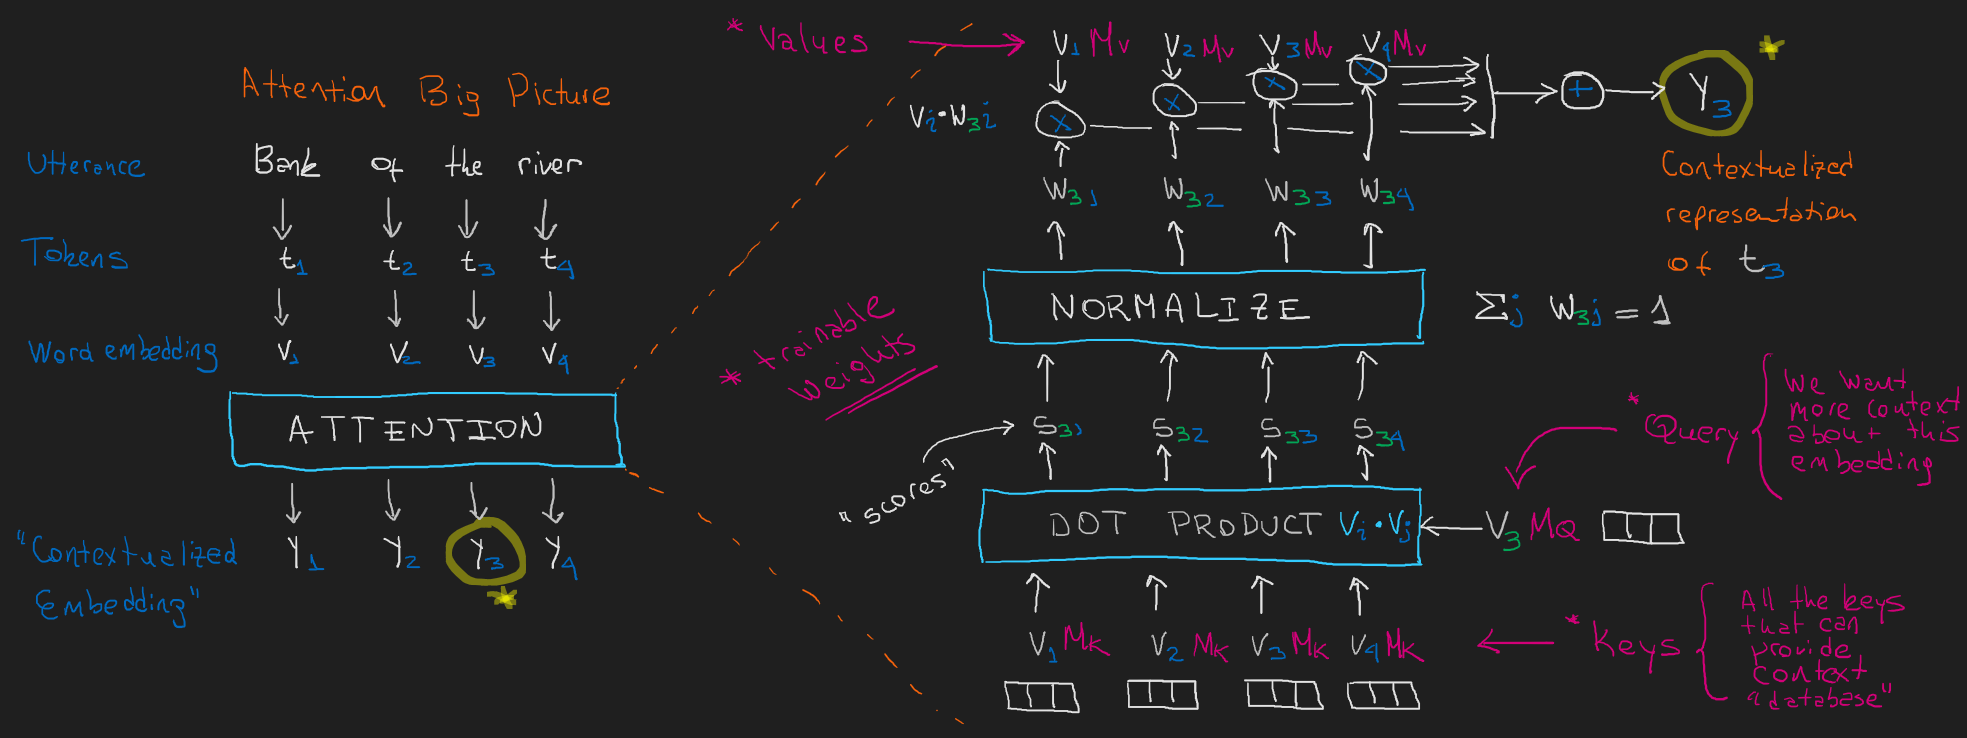 Attention Big Picture
Utterance Bank of the river
Tokens t1 t2 t3 t4
Word embedding V1 V2 V3 V4
ATTENTION
"Contextualized Embedding" Y1 Y2 Y3 Y4
* Values V1 Mv V2 Mv V3 Mv V4 Mv
Vi·W3i X X X X + Y3
W31 W32 W33 W34
Contextualized
representation
of t3
NORMALIZE
Σj W3j = 1
* trainable
weights
"scores" S31 S32 S33 S34
* Query
We want
more context
about this
embedding
DOT PRODUCT Vi·Vj
V3 MQ
V1 MK V2 MK V3 MK V4 MK
* Keys
All the keys
that can
provide
context
"database"